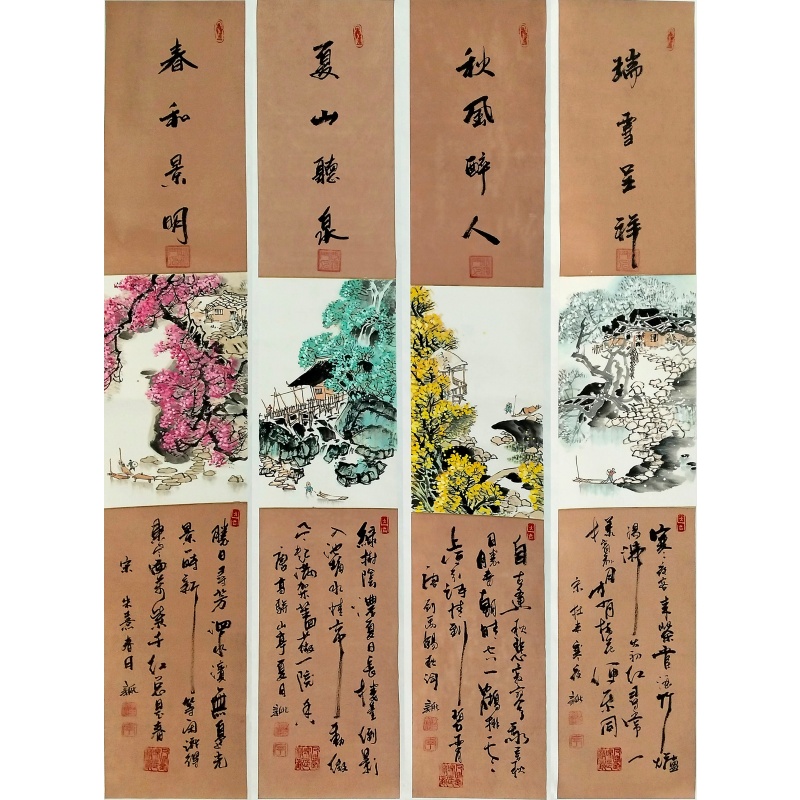 春和景明
勝日尋芳泗水濱無邊光
景一時新等閒識得
東風面萬紫千紅總是春
宋 朱熹春日
夏山聽泉
綠樹陰濃夏日長樓臺倒影
入池塘水晶帘動微
風起滿架薔薇一院香
唐高駢山亭夏日
秋風醉人
自古逢秋悲寂寥我言秋
日勝春朝晴空一鶴排雲
上便引詩情到碧霄
唐劉禹錫秋詞
瑞雪呈祥
寒夜客來茶當酒竹爐
湯沸火初紅尋常一
樣窗前月才有梅花便不同
宋杜耒寒夜